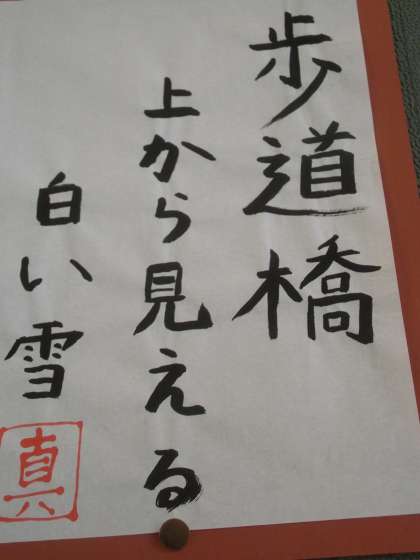 歩道橋
上から見える
白い雪
真